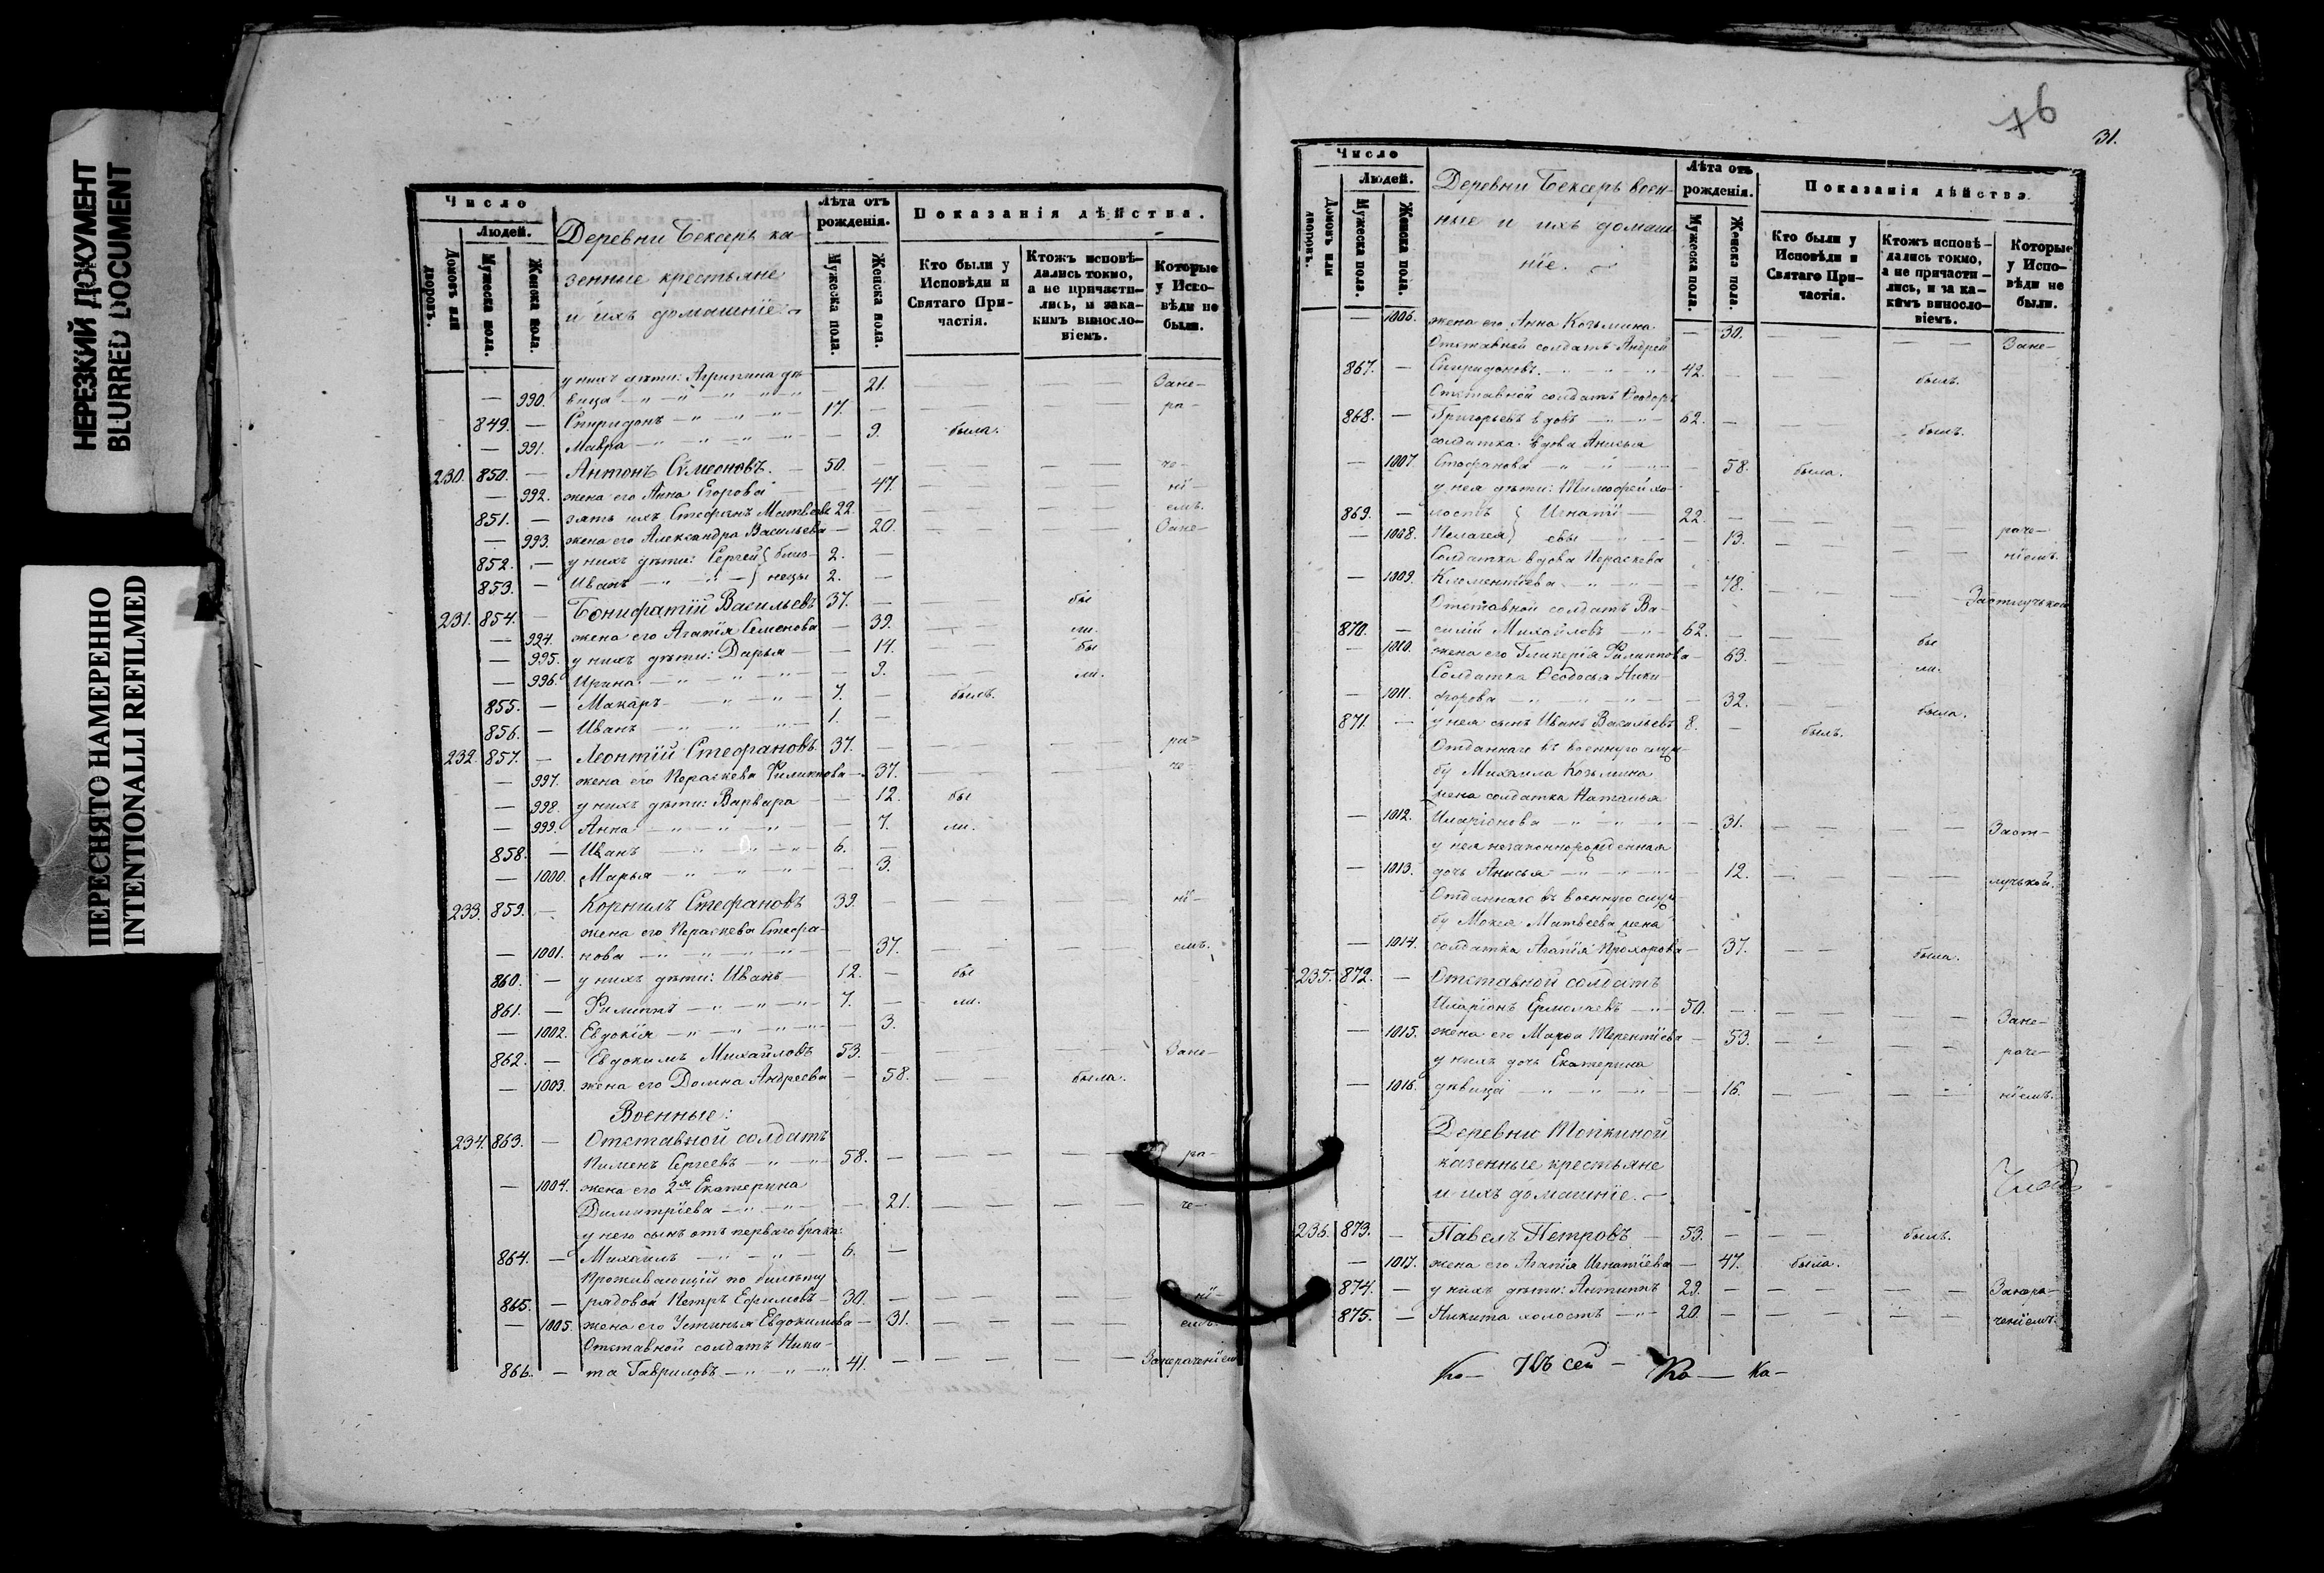 НЕРЕЗКИЙ ДОКУМЕНТ
BLURRED DOCUMENT
ПЕРЕСНЯТО НАМЕРЕННО
INTENTIONALLI REFILMED
Число
Людей.
Домовъ или дворовъ.
Мужеска пола.
Женска пола.
Деревни Бексеръ ка-
зенные крестьяне
и ихъ домашніе.
Лѣта отъ рожденія.
Мужеска пола.
Женска пола.
Показанія дѣйства.
Кто были у Исповѣди и Святаго При-частія.
Ктожъ исповѣ-дались токмо, а не причасти-лись, и зака-кимъ винносло-віемъ.
Которые у Испо-вѣди не были.
у нихъ дѣти: Агрипина дѣ- 21. Зане-
— 990. вица — ра-
849. — Спиридонъ 17. —
— 991. Мавра — 9. была.
230. 850. — Антонъ Сѵмеоновъ. 50. — че-
— 992. жена его Анна Егорова — 47. ні-
851. — зять ихъ Стефанъ Матвеевъ 22. — емъ.
— 993. жена его Александра Васильева — 20. Зане-
852. — у нихъ дѣти: Сергей } близ- 2. —
853. — Иванъ } нецы 2. —
231. 854. — Бонифатій Васильевъ 37. — бы
— 994. жена его Агапія Семенова — 39. ли.
— 995. у нихъ дѣти: Дарья — 14. бы
— 996. Ирина — 9. ли.
855. — Макаръ 7. — былъ.
856. — Иванъ 1. —
232. 857. — Леонтій Стефановъ 37. — ра-
— 997. жена его Параскева Филиппова — 37. че-
— 998. у нихъ дѣти: Варвара — 12. бы
— 999. Анна — 7. ли.
858. — Иванъ 6. —
— 1000. Марья — 3.
233. 859. — Корнилъ Стефановъ 39. — ні-
жена его Параскева Стефа-
— 1001. нова — 37. емъ.
860. — у нихъ дѣти: Иванъ 12. — бы
861. — Филиппъ 7. — ли.
— 1002. Евдокія — 3.
862. — Евдокимъ Михайловъ 53. — Зане-
— 1003. жена его Домна Андреева — 58. была.
Военные:
234. 863. — Отставной солдатъ
Пименъ Сергеевъ 58. — ра-
— 1004. жена его 2я Екатерина
Димитріева — 21. че-
у него сынъ отъ перваго брака:
864. — Михаилъ 6. —
Проживающій по билету
865. — рядовой Петръ Ефимовъ 30. — ні-
— 1005. жена его Устинья Евдокимова — 31. емъ.
Отставной солдатъ Ники-
866. — та Гавриловъ 41. — Занераченіем
76
31.
Число
Людей.
Домовъ или дворовъ.
Мужеска пола.
Женска пола.
Деревни Бексеръ воен-
ные и ихъ домаш-
ніе.
Лѣта отъ рожденія.
Мужеска пола.
Женска пола.
Показанія дѣйства.
Кто были у Исповѣди и Святаго При-частія.
Ктожъ исповѣ-дались токмо, а не причасти-лись, и за ка-кимъ винносло-віемъ.
Которые у Испо-вѣди не были.
— 1006. жена его Анна Козьмина — 30. Зане-
Отставной солдатъ Андрей
867. — Спиридоновъ. 42. — былъ.
Отставной солдатъ Ѳеодоръ
868. — Григорьевъ вдовъ 62. — былъ.
солдатка вдова Анисья
— 1007. Стефанова — 58. была.
у нея дѣти: Тимофей хо-
869. — лостъ } Игнаті- 22. — раче-
— 1008. Пелагея } евы — 13. ніемъ.
Солдатка вдова Параскева
— 1009. Клементіева — 78. Заотлучькой
Отставной солдатъ Ва-
870. — силій Михайловъ 62. — бы
— 1010. жена его Гликерія Филиппова — 63. ли.
Солдатка Ѳеодосья Ники-
— 1011. форова — 32. была.
871. — у нея сынъ Иванъ Васильевъ 8. — былъ.
Отданнаго въ военную служ-
бу Михаила Козьмина
жена солдатка Наталья
— 1012. Иларіонова — 31. Заот-
у нея незаконнорожденная
— 1013. дочь Анисья — 12. лучькой.
Отданнаго въ военную служ-
бу Мокея Матвѣева жена
— 1014. солдатка Агапія Прохорова — 37. была.
235. 872. — Отставной солдатъ
Иларіонъ Ермолаевъ 50. — Зане-
— 1015. жена его Марѳа Терентіева — 53. раче-
у нихъ дочь Екатерина
— 1016. дѣвица — 16. ніемъ.
Деревни Топкиной
казенные крестьяне
и ихъ домашніе.
236. 873. — Павелъ Петровъ 53. — былъ.
— 1017. жена его Агапія Игнатіева — 47. была.
874. — у нихъ дѣти: Антипъ 29. — Занера-
875. — Никита холостъ 20. — ченіемъ.